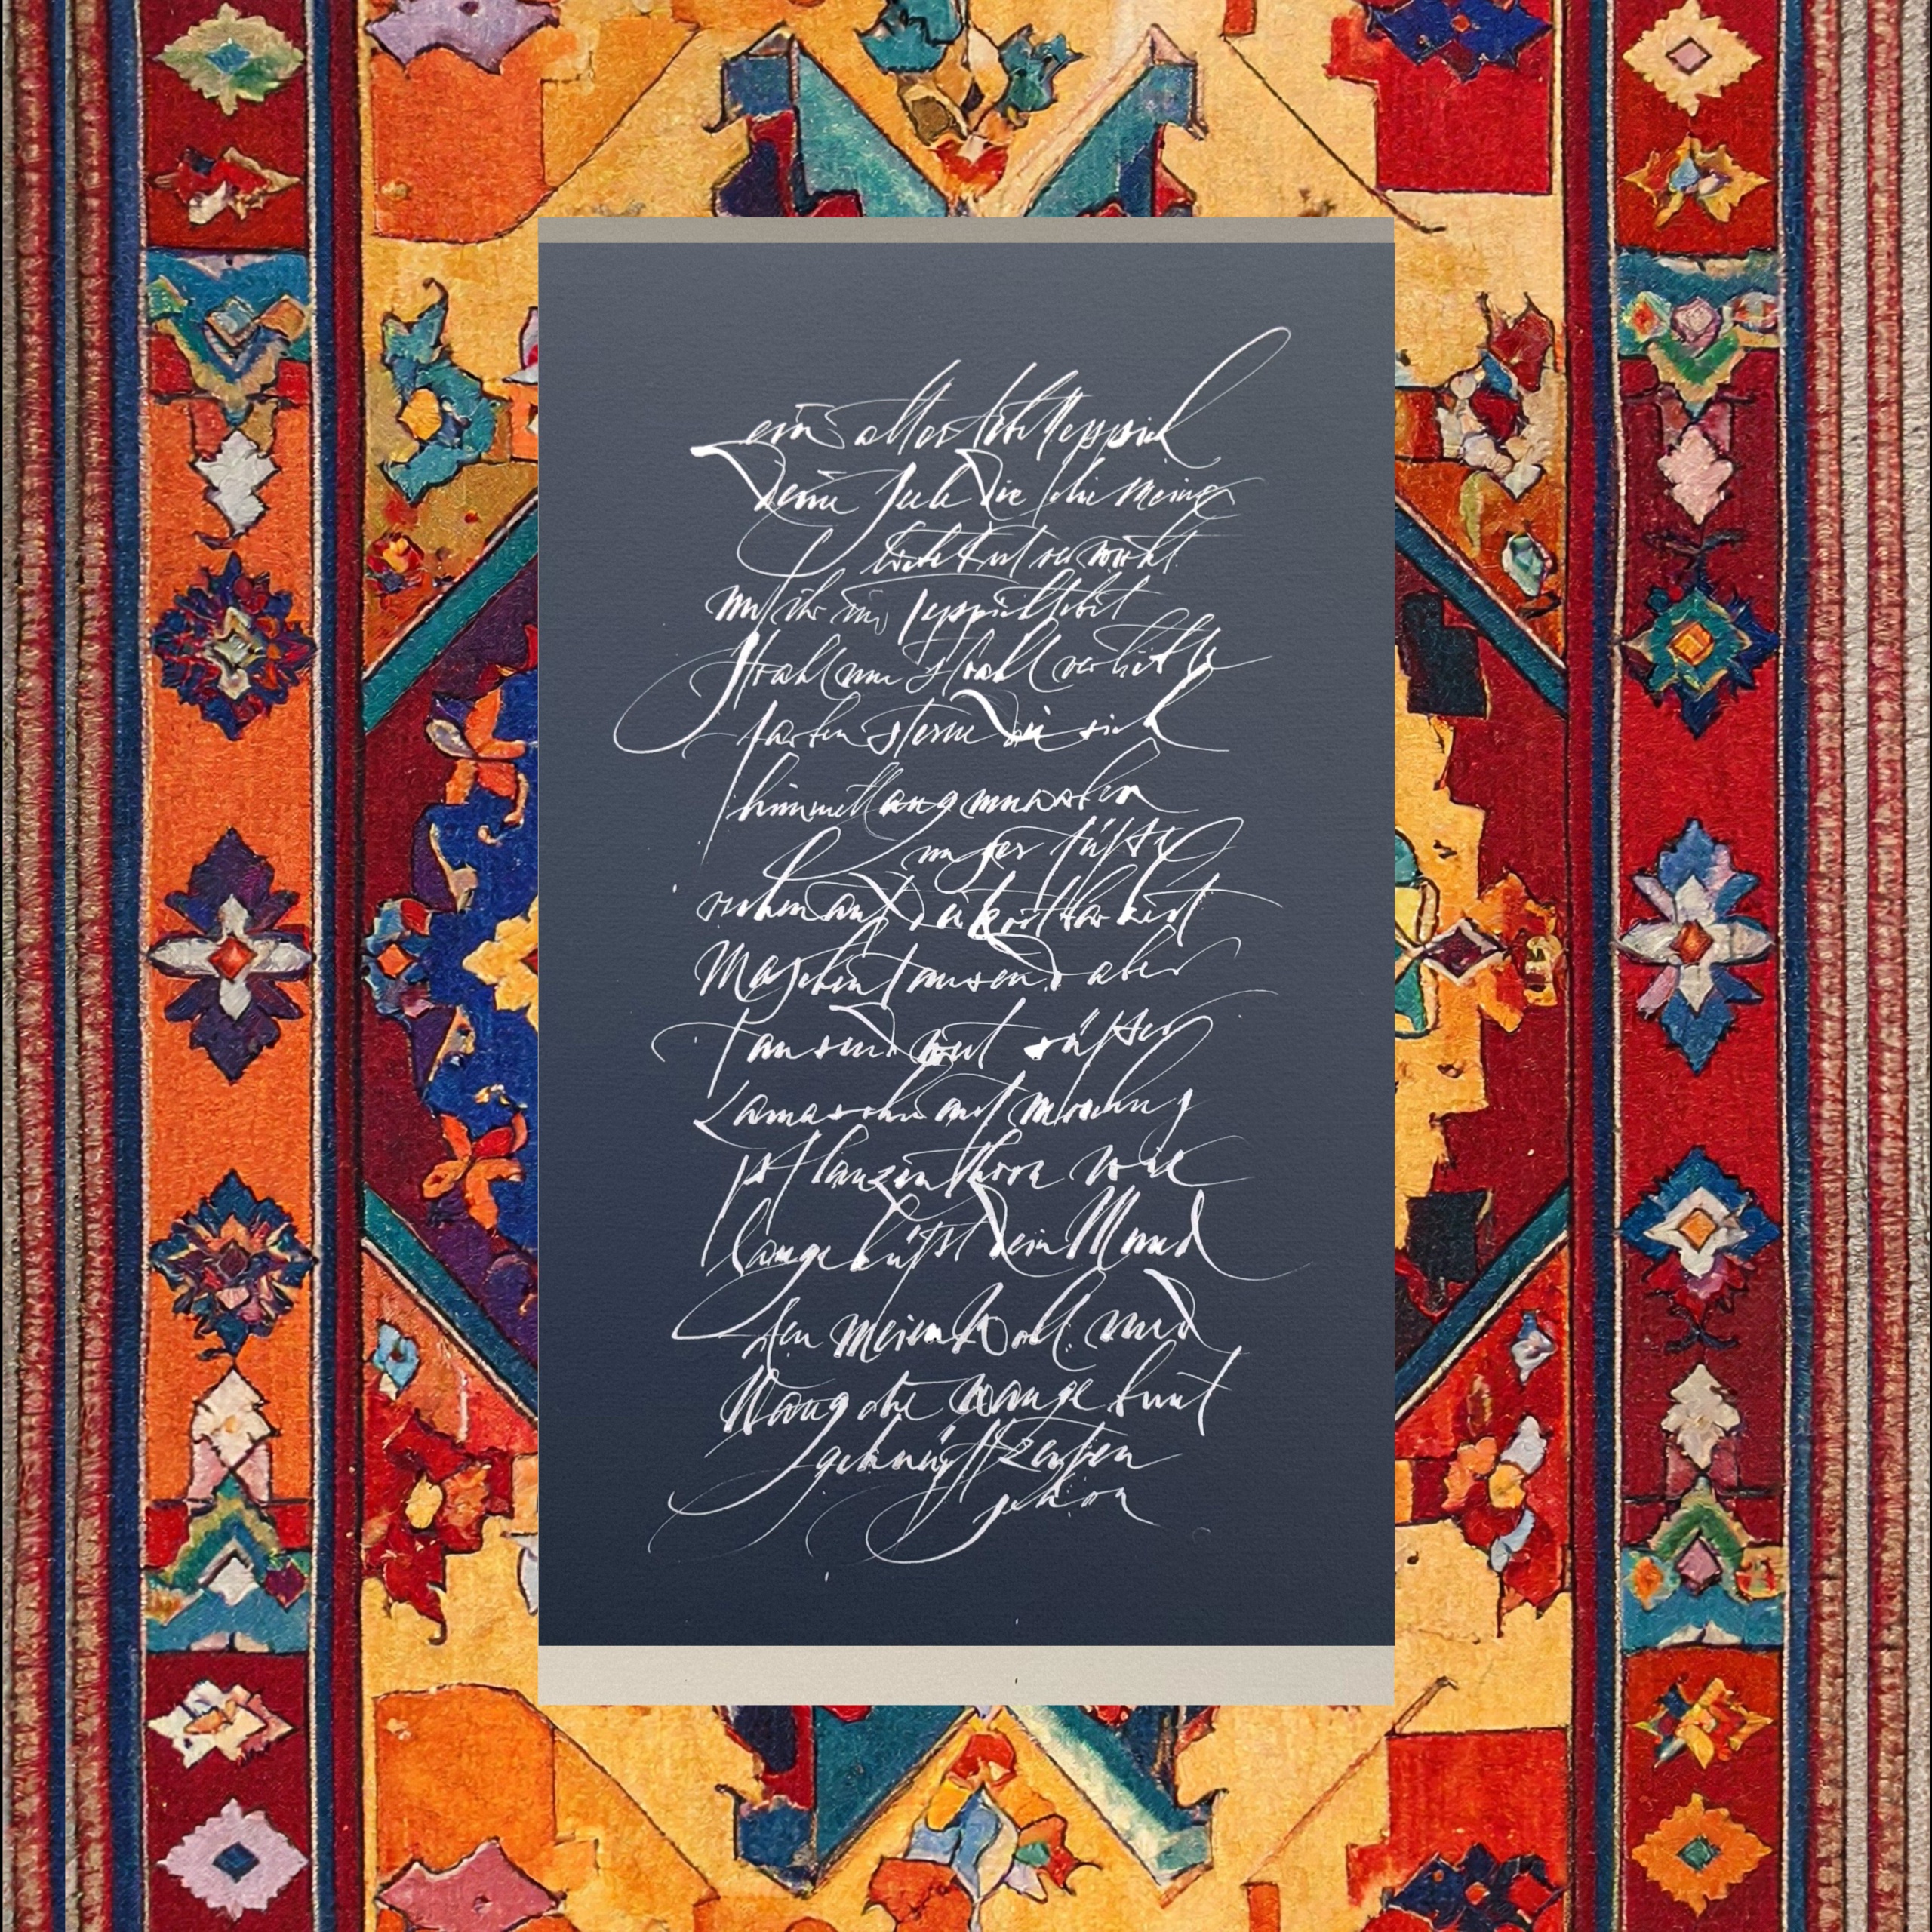 ein alter tibetteppich
Deine Seele die die meine
liebet ist verwirkt
mit ihr im Teppichtibet
Strahl in Strahl verliebte
farben sterne die sich
himmellang umwarben
unsere füße
ruhen auf der kostbarkeit
Maschentausend aber
tausend weit süßer
Lamasohn auf moschus
pflanzenthron wie
lange küßt dein Mund
den meinen wohl und
Wang die wange bunt
geknüpfte zeiten
schon